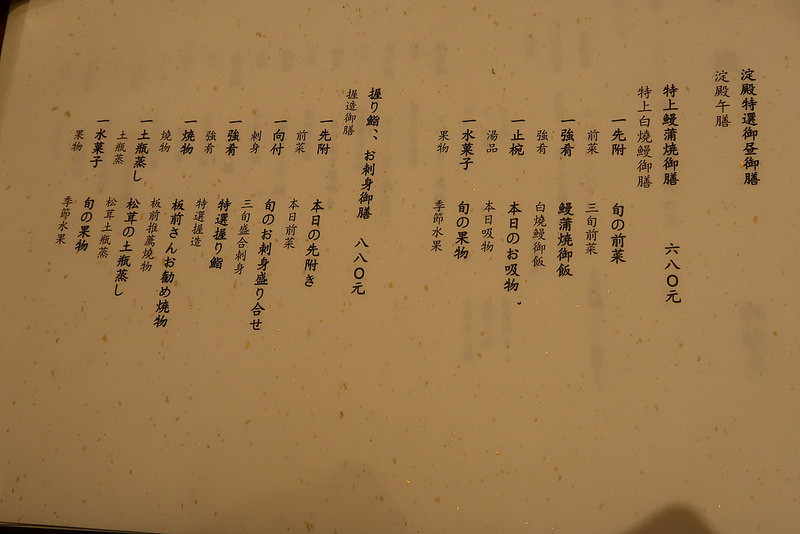 淀殿特選御昼御膳
淀殿午膳
特上鰻蒲焼御膳 六八〇元
特上白燒鰻御膳
一先附 旬の前菜
前菜 三旬前菜
一強肴 鰻蒲焼御飯
強肴 白燒鰻御飯
一止椀 本日のお吸物
湯品 本日吸物
一水菓子 旬の果物
果物 季節水果
握り鮨、お刺身御膳 八八〇元
握造御膳
一先附 本日の先附き
前菜 本日前菜
一向付 旬のお刺身盛り合せ
刺身 三旬盛合刺身
一強肴 特選握り鮨
強肴 特選握造
一焼物 板前さんお勧め焼物
燒物 板前推薦燒物
一土瓶蒸し 松茸の土瓶蒸し
土瓶蒸 松茸土瓶蒸
一水菓子 旬の果物
果物 季節水果